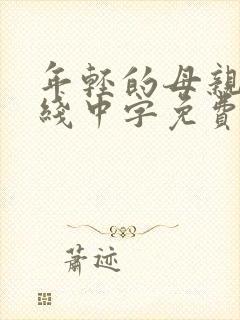 年轻的母亲
线中字免费
萧迹